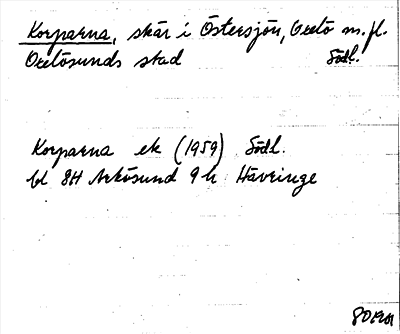 Korparna, skär i Östersjön, Oxelö m.fl.
Oxelösunds stad Södl.
Korparna ek (1959) Södl.
bl 8H Arkösund 9 h Hävringe